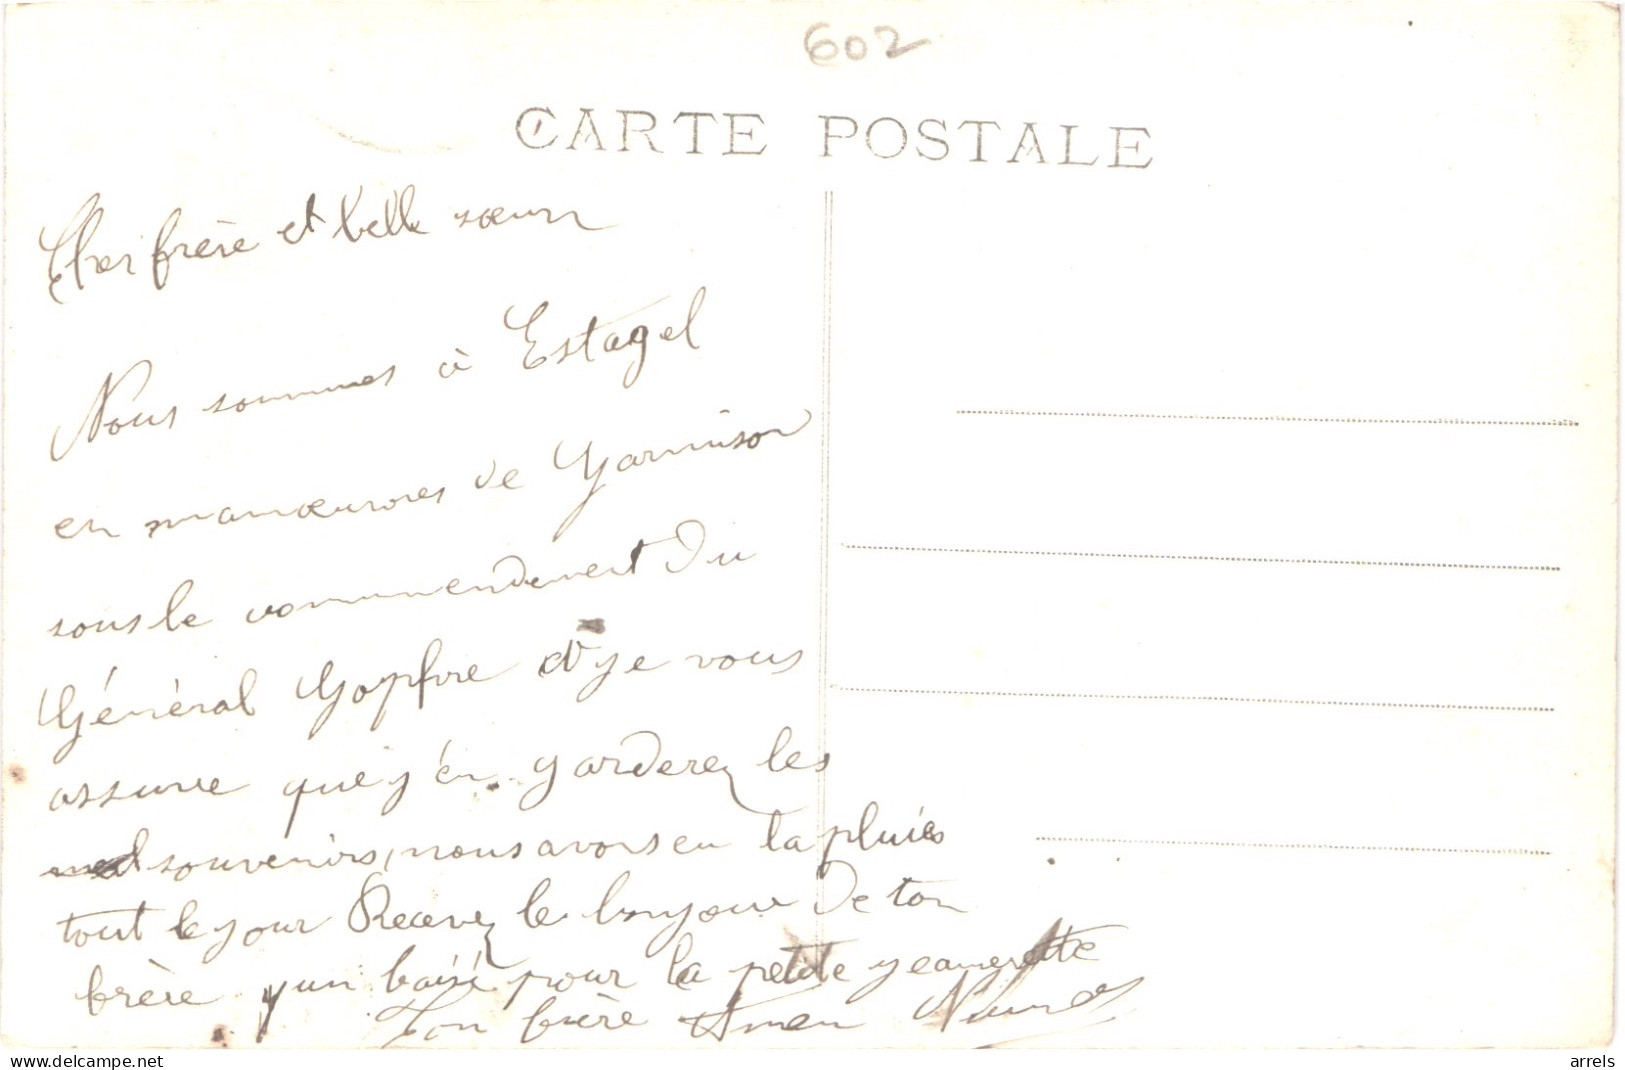 602
CARTE POSTALE
Cher frère et belle sœur
Nous sommes à Estagel
en manœuvres de Garnison
sous le commendement du
Général Gopfre et je vous
assure que j'en garderez les
souvenirs, nous avons eu la pluie
tout le jour Recevez le bonjour de ton
frère un baisé pour la petite
Ton frère
delcampe.net
arrels